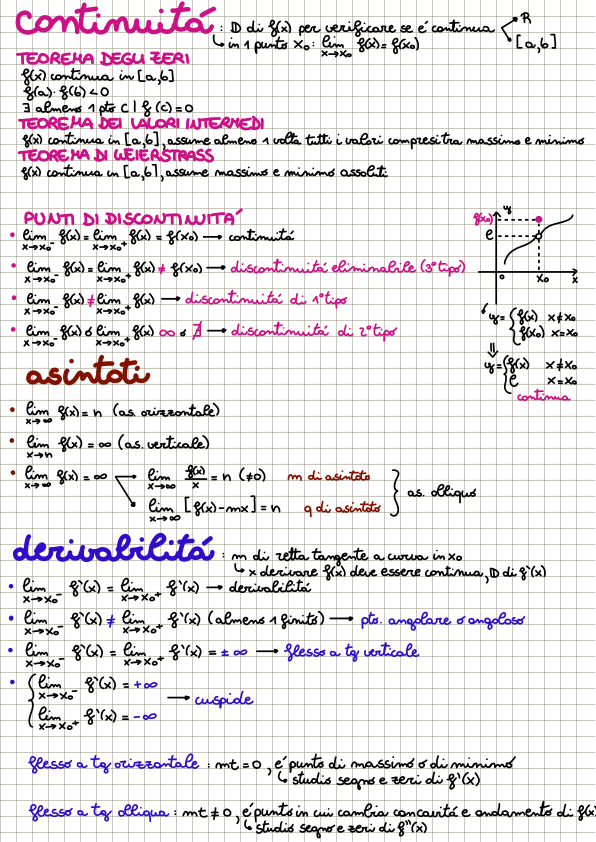 continuitá : D di f(x) per verificare se é continua → R
→ [a,b]
↳ in 1 punto x₀: lim x→x₀ f(x) = f(x₀)
TEOREMA DEGLI ZERI
f(x) continua in [a,b]
f(a)·f(b) < 0
∃ almeno 1 pto c | f(c) = 0
TEOREMA DEI VALORI INTERMEDI
f(x) continua in [a,b], assume almeno 1 volta tutti i valori compresi tra massimo e minimo
TEOREMA DI WEIERSTRASS
f(x) continua in [a,b], assume massimo e minimo assoluti
PUNTI DI DISCONTINUITA'
• lim x→x₀⁻ f(x) = lim x→x₀⁺ f(x) = f(x₀) → continuitá
• lim x→x₀⁻ f(x) = lim x→x₀⁺ f(x) ≠ f(x₀) → discontinuitá eliminabile (3°tipo)
• lim x→x₀⁻ f(x) ≠ lim x→x₀⁺ f(x) → discontinuitá di 1°tipo
• lim x→x₀⁻ f(x) o lim x→x₀⁺ f(x) ∞ o ∄ → discontinuitá di 2°tipo
y
f(x₀)
ℓ
0 x₀ x
y = { f(x) x≠x₀
f(x₀) x=x₀
⇓
y = { f(x) x≠x₀
ℓ x=x₀
continua
asintoti
• lim x→∞ f(x) = n (as. orizzontale)
• lim x→n f(x) = ∞ (as. verticale)
• lim x→∞ f(x) = ∞ → lim x→∞ f(x)/x = n (≠0) m di asintoto
→ lim x→∞ [f(x)-mx] = n q di asintoto
} as. obliquo
derivabilitá : m di retta tangente a curva in x₀
↳ x derivare f(x) deve essere continua, D di f'(x)
• lim x→x₀⁻ f'(x) = lim x→x₀⁺ f'(x) → derivabilitá
• lim x→x₀⁻ f'(x) ≠ lim x→x₀⁺ f'(x) (almeno 1 finito) → pto. angolare o angoloso
• lim x→x₀⁻ f'(x) = lim x→x₀⁺ f'(x) = ±∞ → flesso a tg verticale
• { lim x→x₀⁻ f'(x) = +∞
lim x→x₀⁺ f'(x) = -∞
→ cuspide
flesso a tg orizzontale : mt = 0, é punto di massimo o di minimo
↳ studio segno e zeri di f'(x)
flesso a tg obliqua : mt ≠ 0, é punto in cui cambia concavitá e andamento di f(x)
↳ studio segno e zeri di f''(x)